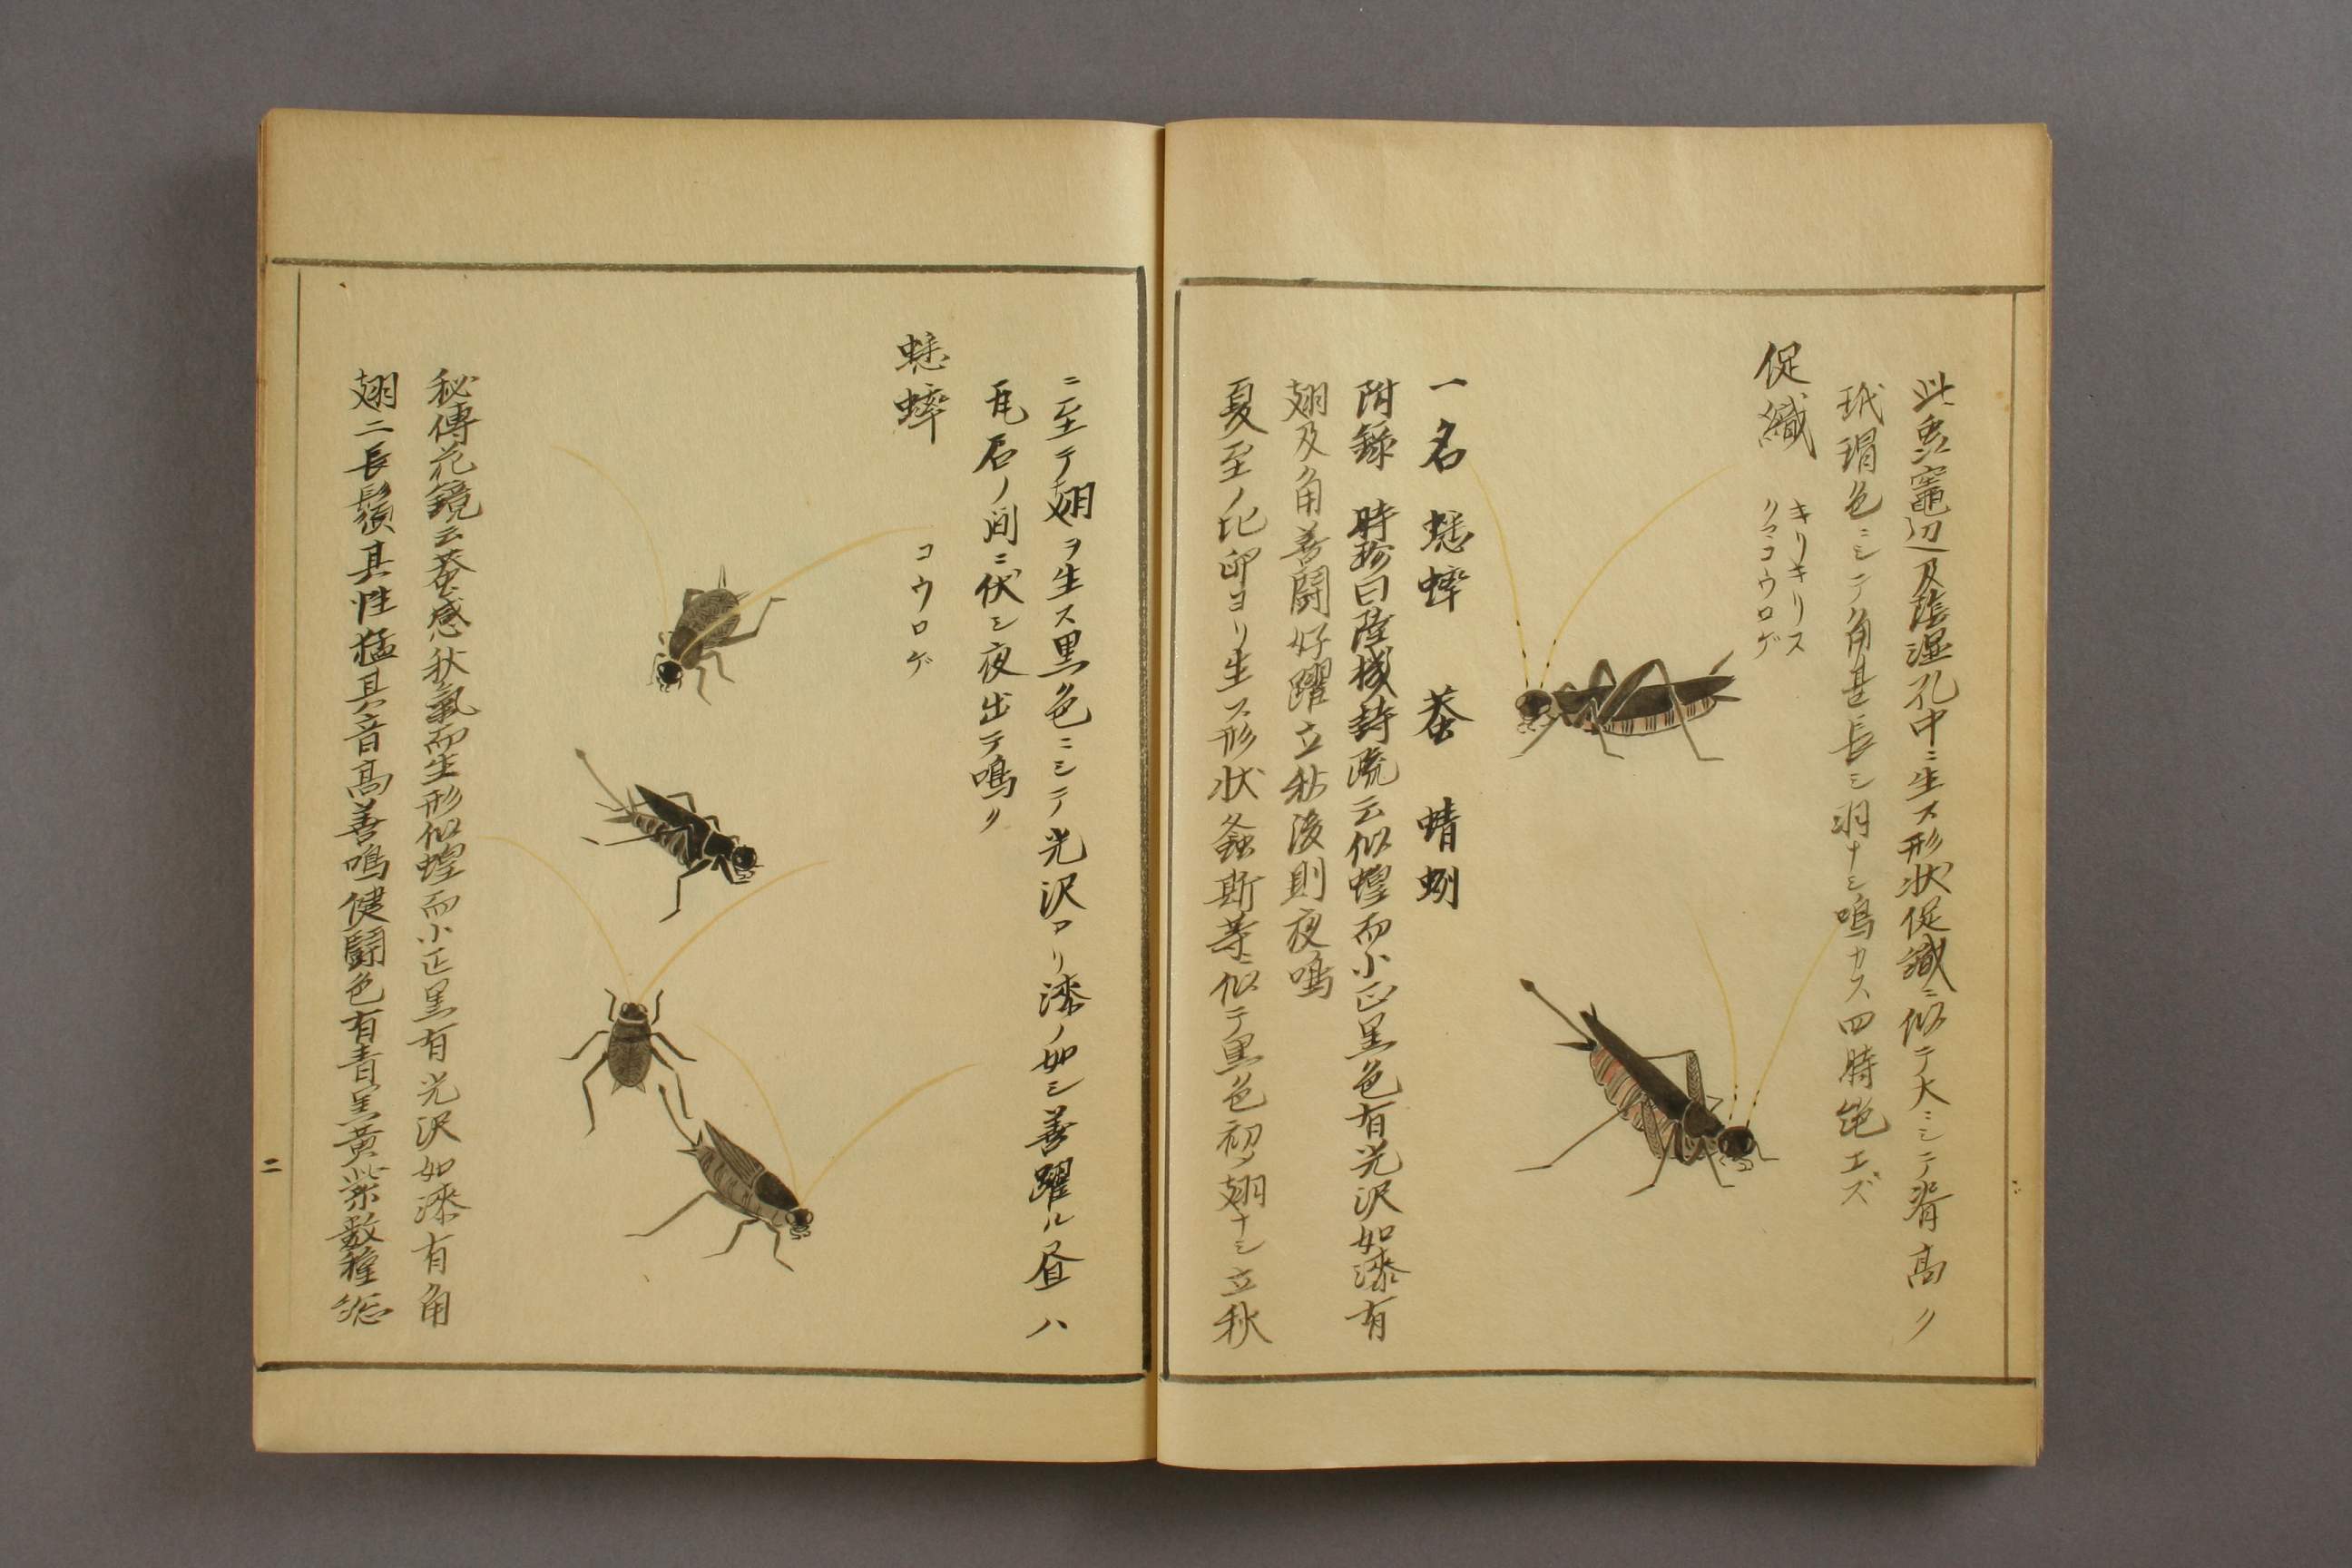 此虫竈辺及陰湿孔中ニ生ス形状促織ニ似テ大ニシテ脊高ク
玳瑁色ニシテ角甚長シ羽ナシ鳴カス四時絶エズ
促織
キリキリス
クマコウロゲ
一名 蟋蟀 蛬 蜻蛚
附錄 時珍曰陸機詩疏云似蝗而小正黒色有光沢如漆有
翅及角善闘好躍立秋後則夜鳴
夏至ノ比卵ヨリ生ス形状螽斯等ニ似テ黒色初ノ翅ナシ立秋
ニ至テ翅ヲ生ス黒色ニシテ光沢アリ漆ノ如シ善躍ル昼ハ
瓦石ノ間ニ伏シ夜出テ鳴ク
蟋蟀
コウロゲ
秘傳花鏡云蛬感秋氣而生形似蝗而小正黒有光沢如漆有角
翅二長鬚其性猛其音高善鳴健闘色有青黒黄紫数種総
二